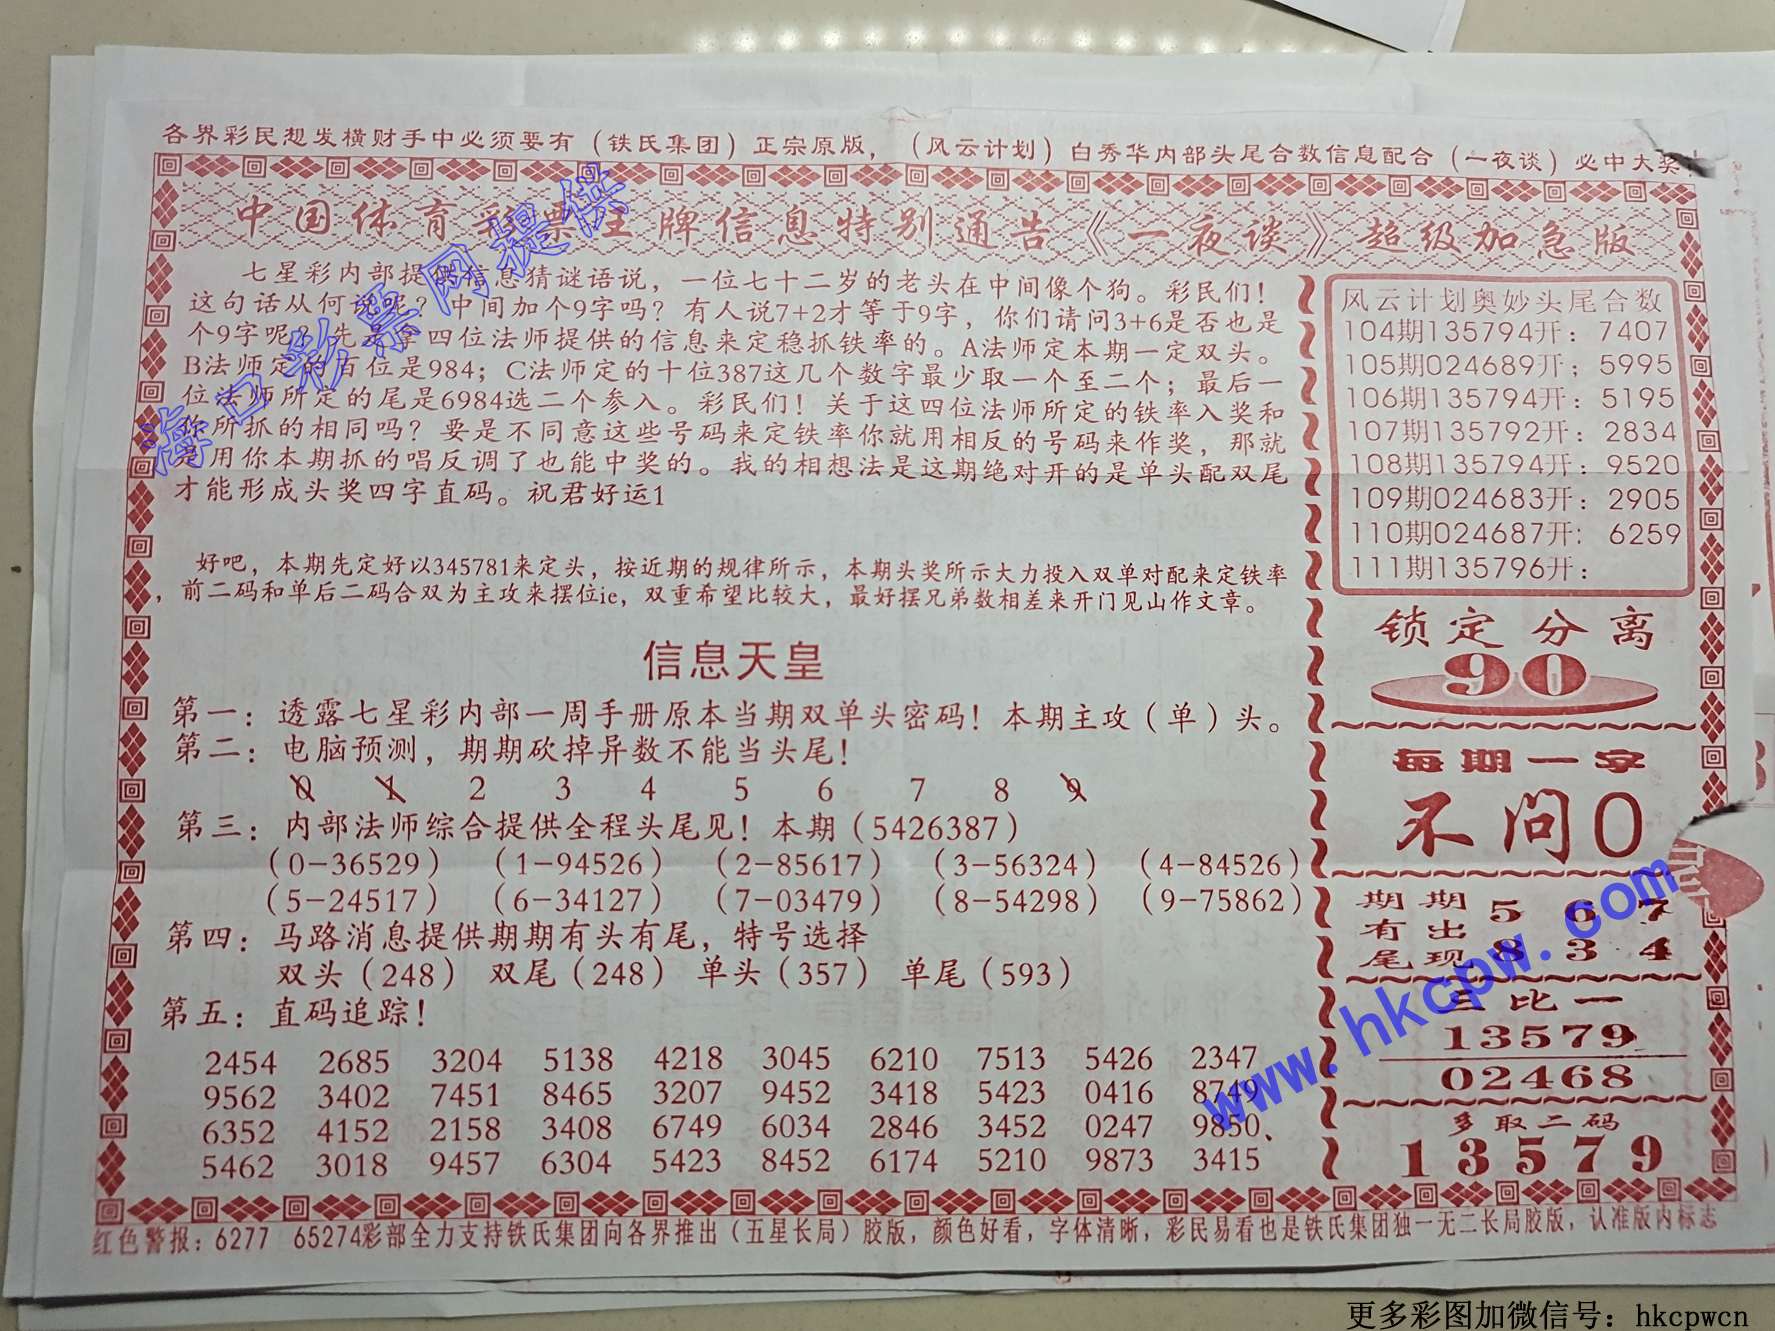 各界彩民想发横财手中必须要有（铁氏集团）正宗原版，（风云计划）白秀华内部头尾合数信息配合（一夜谈）必中大奖！
中国体育彩票王牌信息特别通告《一夜谈》超级加急版
七星彩内部提供信息猜谜语说，一位七十二岁的老头在中间像个狗。彩民们！
这句话从何说呢？中间加个9字吗？有人说7+2才等于9字，你们请问3+6是否也是
个9字呢？先是拿四位法师提供的信息来定稳抓铁率的。A法师定本期一定双头。
B法师定的百位是984；C法师定的十位387这几个数字最少取一个至二个；最后一
位法师所定的尾是6984选二个参入。彩民们！关于这四位法师所定的铁率入奖和
你所抓的相同吗？要是不同意这些号码来定铁率你就用相反的号码来作奖，那就
用你本期抓的唱反调了也能中奖的。我的相想法是这期绝对开的是单头配双尾
才能形成头奖四字直码。祝君好运1
好吧，本期先定好以345781来定头，按近期的规律所示，本期头奖所示大力投入双单对配来定铁率
，前二码和单后二码合双为主攻来摆位ie，双重希望比较大，最好摆兄弟数相差来开门见山作文章。
信息天皇
第一：透露七星彩内部一周手册原本当期双单头密码！本期主攻（单）头。
第二：电脑预测，期期砍掉异数不能当头尾！
0 1 2 3 4 5 6 7 8 9
第三：内部法师综合提供全程头尾见！本期（5426387）
（0-36529） （1-94526） （2-85617） （3-56324） （4-84526）
（5-24517） （6-34127） （7-03479） （8-54298） （9-75862）
第四：马路消息提供期期有头有尾，特号选择
双头（248） 双尾（248） 单头（357） 单尾（593）
第五：直码追踪！
2454 2685 3204 5138 4218 3045 6210 7513 5426 2347
9562 3402 7451 8465 3207 9452 3418 5423 0416 8749
6352 4152 2158 3408 6749 6034 2846 3452 0247 9850、
5462 3018 9457 6304 5423 8452 6174 5210 9873 3415
风云计划奥妙头尾合数
104期135794开：7407
105期024689开；5995
106期135794开：5195
107期135792开：2834
108期135794开：9520
109期024683开：2905
110期024687开：6259
111期135796开：
锁定分离
90
每期一字
不问0
期期
有出
尾现
5 6 7
8 3 4
三比一
13579
02468
多取二码
13579
红色警报：6277 65274彩部全力支持铁氏集团向各界推出（五星长局）胶版，颜色好看，字体清晰，彩民易看也是铁氏集团独一无二长局胶版，认准版内标志
海口彩票网提供
www.hkcpw.com
更多彩图加微信号：hkcpwcn